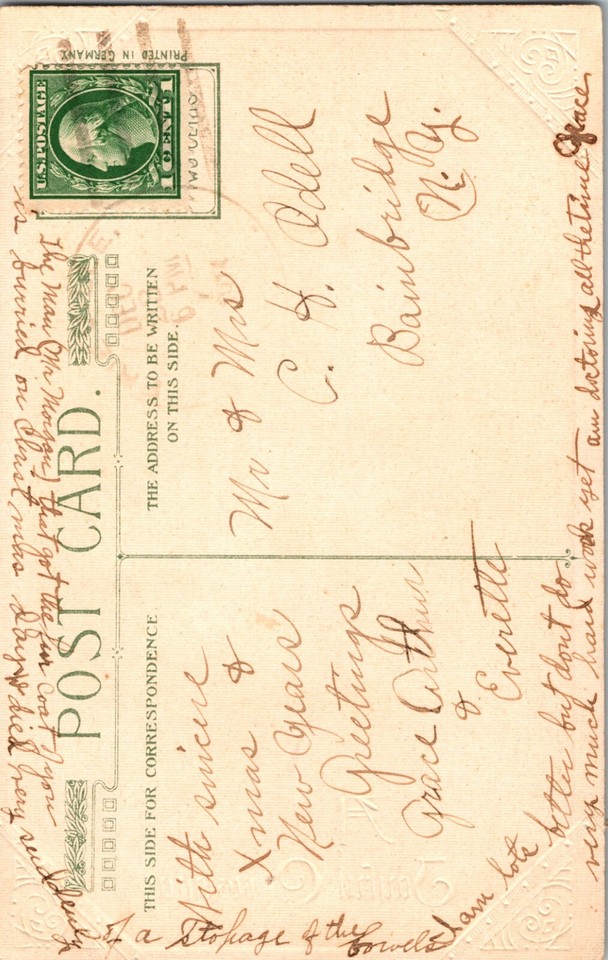 PRINTED IN GERMANY
U.S. POSTAGE
1 CENT 1
DEC
6 PM
POST CARD.
THIS SIDE FOR CORRESPONDENCE
THE ADDRESS TO BE WRITTEN
ON THIS SIDE.
With sincere
Xmas &
New Years
Greetings
Grace Arthur
& Everette
Mr & Mrs
C. H. Odell
Bainbridge
N. Y.
I am lots better but dont do
very much hard work yet am doctoring all the time Grace
The Man (Mr Morgan) that got the fur coat of you
is burried on Christmas Day, died very suddenly
of a stopage of the bowels